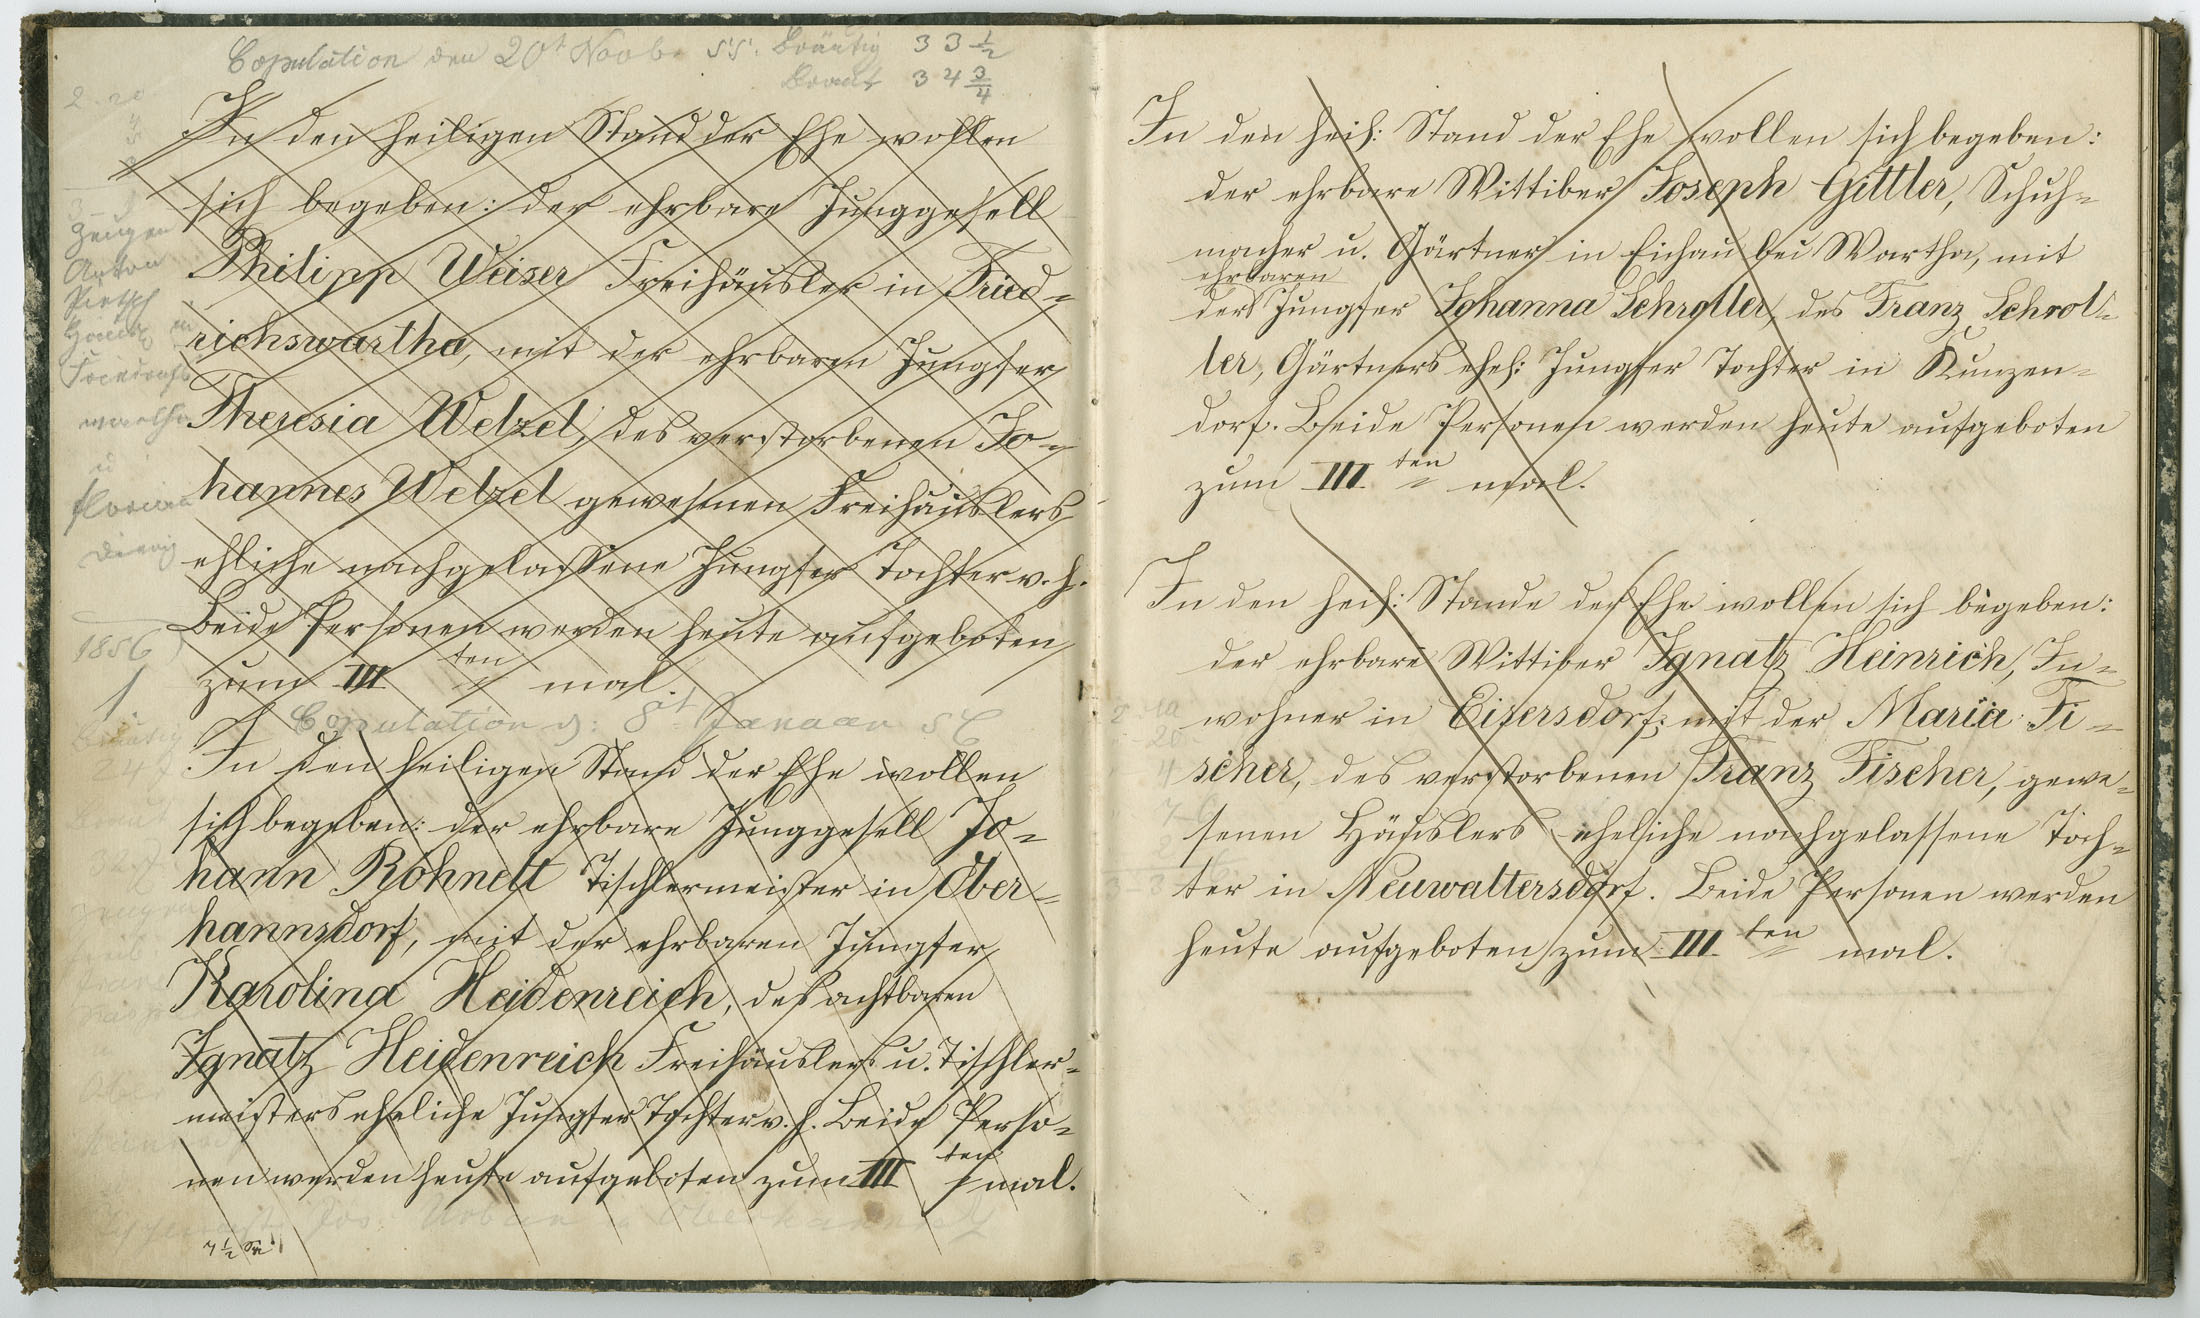 Copulation den 20t Novb. 55. Bräutig 33 1/2
Braut 34 3/4
In den heiligen Stand der Ehe wollen
sich begeben: der ehrbare Junggesell
Philipp Weiser Freihäusler in Fried=
richswartha, mit der ehrbaren Jungfer
Theresia Welzel, des verstorbenen Jo=
hannes Welzel gewesenen Freihäuslers
ehliche nachgelassene Jungfer Tochter v. h.
Beide Personen werden heute aufgeboten
zum III ten mal.
Zeugen
Anton
Pietsch
in
Friedrichs
wartha
Florian
1856
1
Copulation d: 8t Januar 56
In den heiligen Stand der Ehe wollen
sich begeben: der ehrbare Junggesell Jo=
hann Rohnelt Tischlermeister in Ober=
hannsdorf, mit der ehrbaren Jungfer
Karolina Heidenreich, des achtbaren
Ignatz Heidenreich Freihäuslers u. Tischler=
meisters eheliche Jungfer Tochter v. h. Beide Perso=
nen werden heute aufgeboten zum III ten mal.
7 1/2
In den heil: Stand der Ehe wollen sich begeben:
der ehrbare Wittiber Joseph Gittler, Schuh=
macher u. Gärtner in Eichau bei Wartha, mit
ehrbaren
der Jungfer Johanna Schrotter, des Franz Schrot=
ter, Gärtners ehel: Jungfer Tochter in Kunzen=
dorf. Beide Personen werden heute aufgeboten
zum III ten mal.
In den heil: Stande der Ehe wollen sich begeben:
der ehrbare Wittiber Ignatz Heinrich, In=
wohner in Eisersdorf; mit der Maria Fi=
scher, des verstorbenen Franz Fischer, gewe=
senen Häuslers eheliche nachgelassene Toch=
ter in Neuwaltersdorf. Beide Personen werden
heute aufgeboten zum III ten mal.